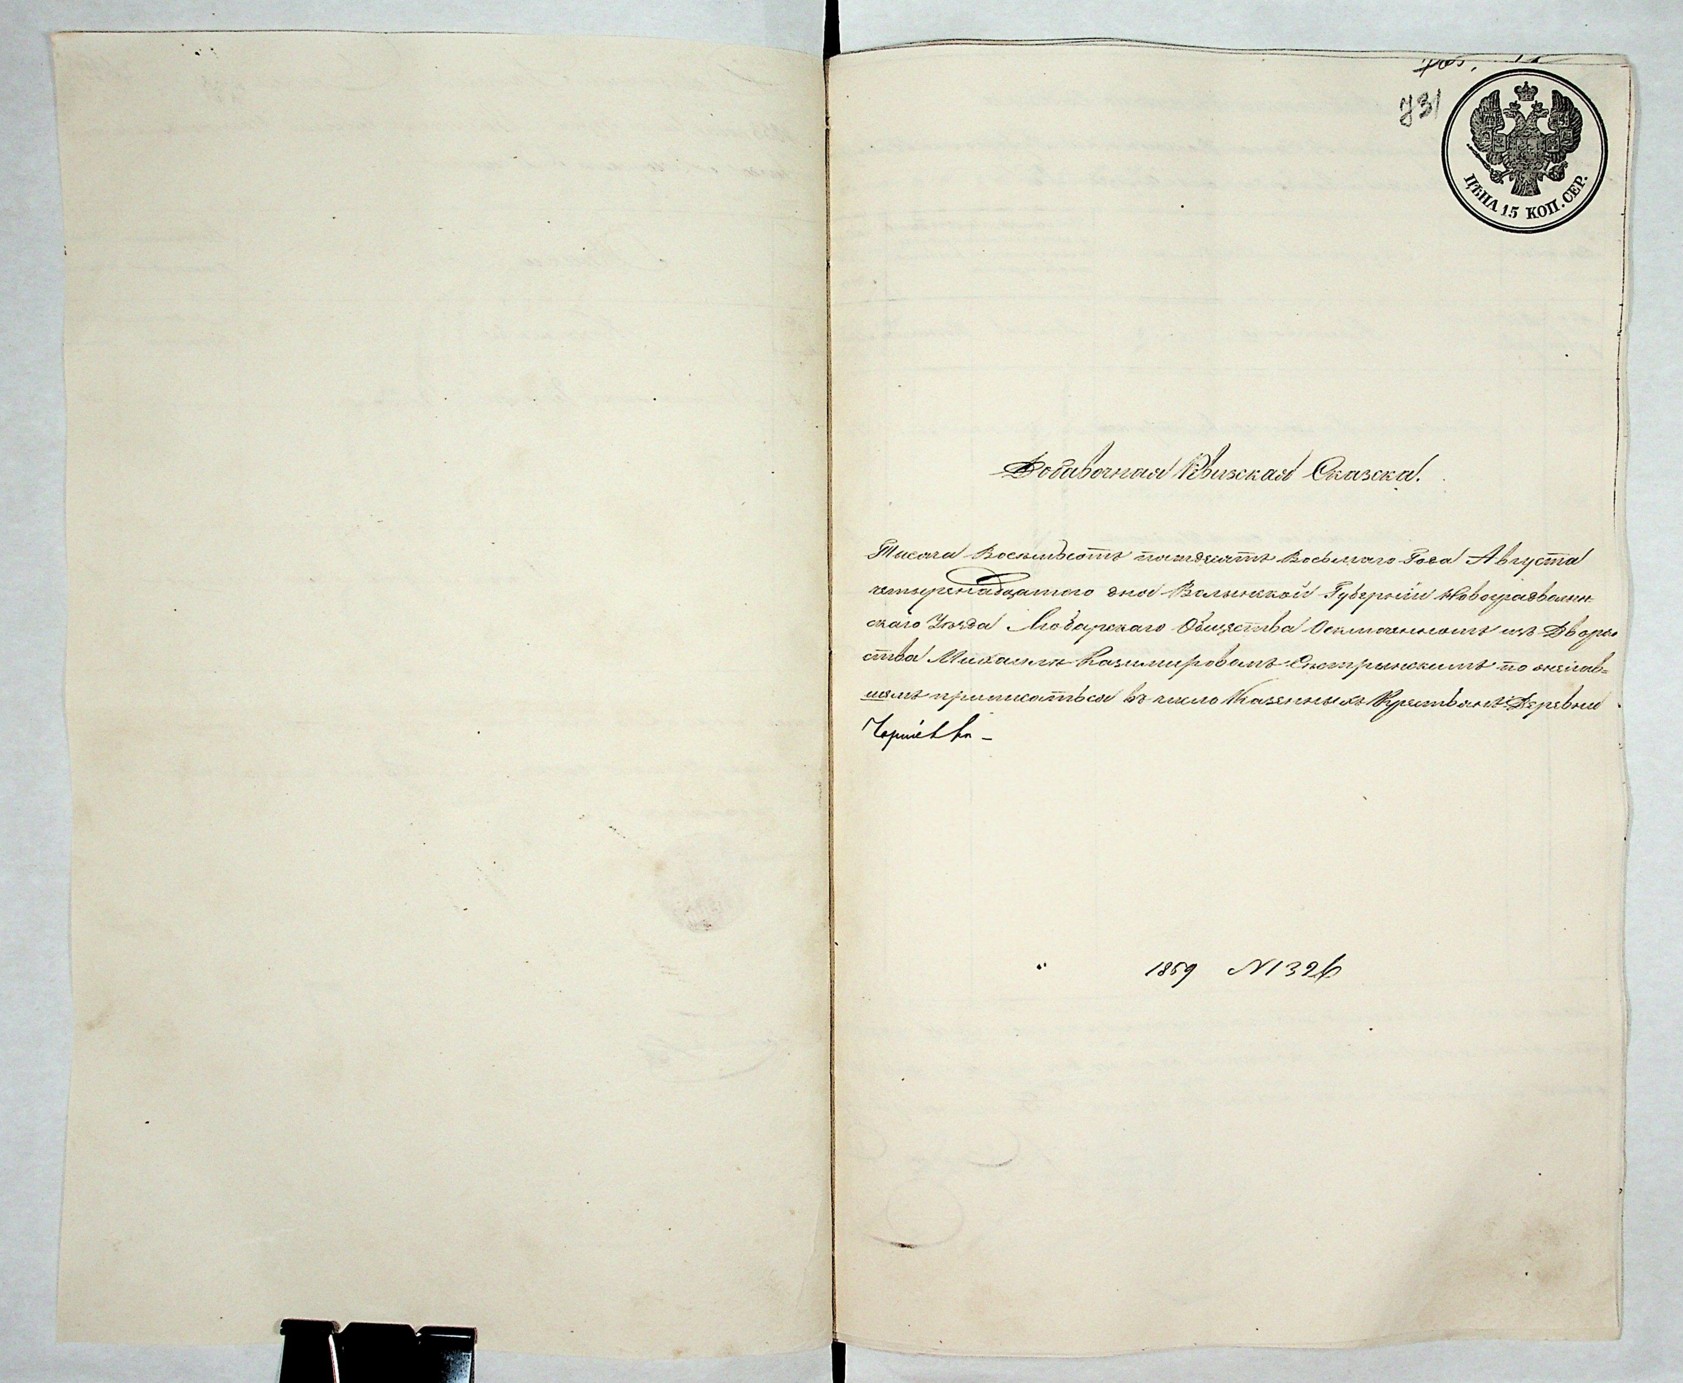 731
ЦѢНА 15 КОП. СЕР.
Добавочная Ревизская Сказска.
Тисяча Восемьсотъ пятдесятъ Восьмаго Года Августа
четыренадцатого дня Волынской Губерніи Новоградволын-
скаго Уѣзда Любарскаго Общества Исключенномъ изъ Дворян
ства Михаилѣ Казимировомъ по
приписаться въ число Казенныхъ Крестьянъ Деревни
1859 N 1326